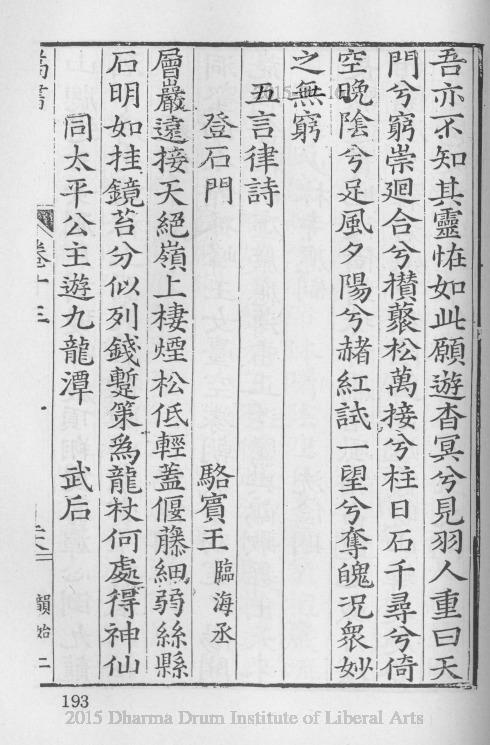 吾亦不知其靈恠如此願遊杳冥兮見羽人重曰天
門兮窮崇廻合兮攅藂松萬接兮柱日石千尋兮倚
空晚陰兮足風夕陽兮赭紅試望兮奪魄况衆妙
之無窮
五言律詩
登石門 駱賓王 臨海丞
層巖遠接天絕嶺上棲煙松低輕蓋偃藤細弱絲縣
石明如挂鏡苔分似列錢蹔策爲龍杖何處得神仙
同太平公主遊九龍潭 武后
卷十三
韻始二
193
2015 Dharma Drum Institute of Liberal Arts